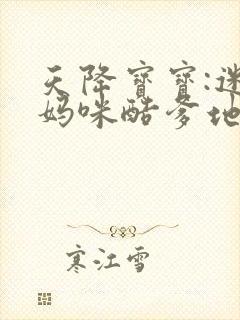 天降寶寶:迷
媽咪酷爹地
寒江雪